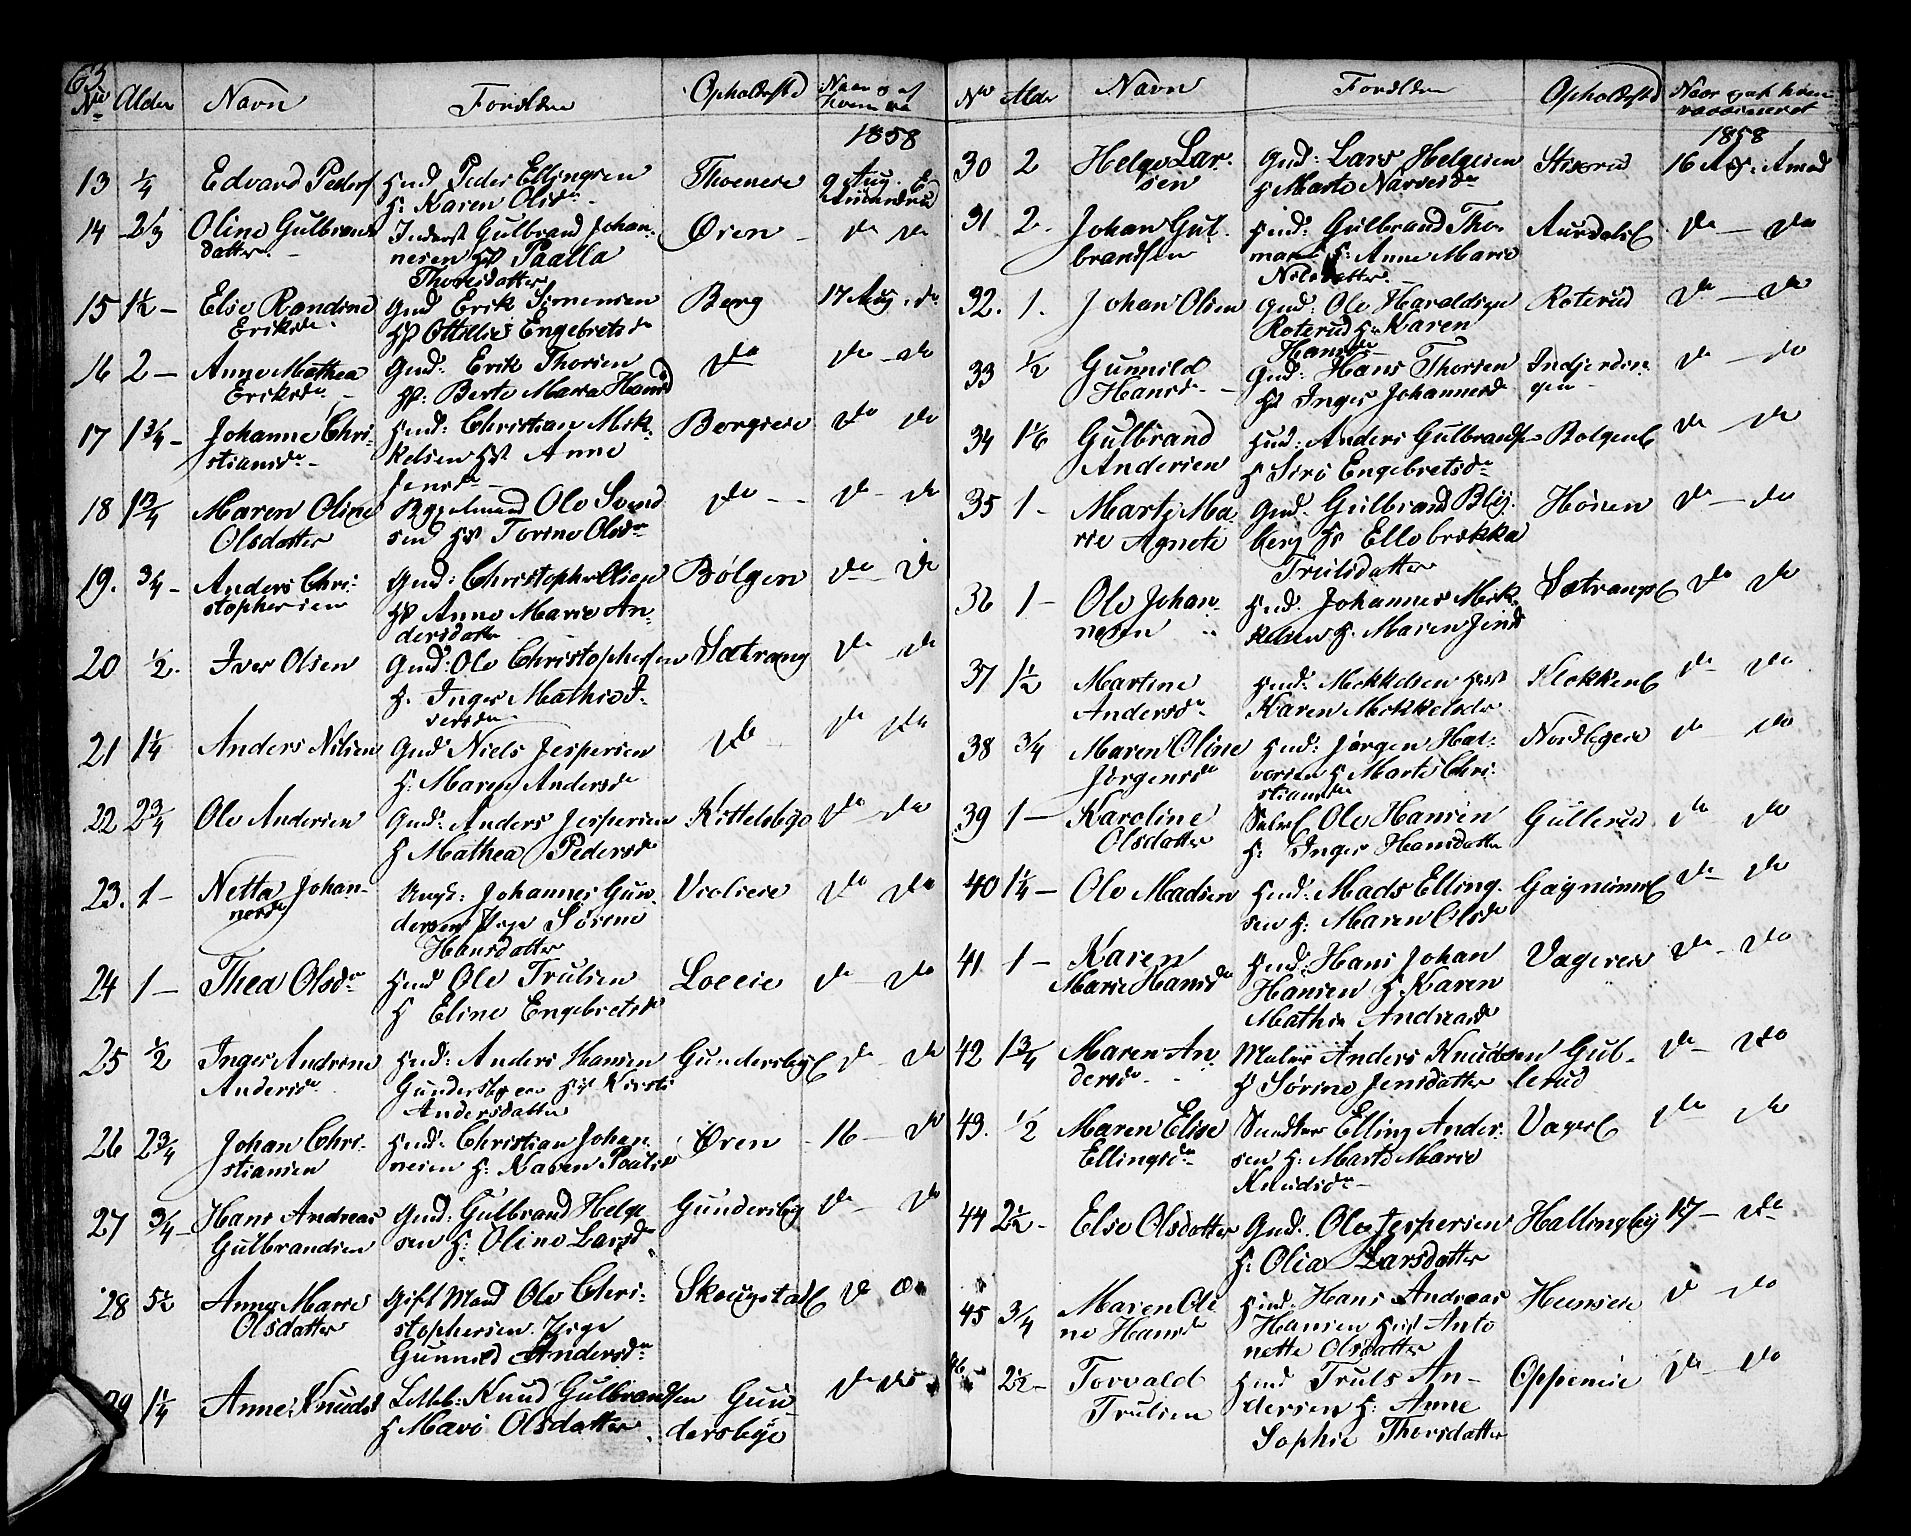 63
No Alder Navn Forældre Opholdssted Naar o af
hvem va
1858
13 1/4 Edvard Peders Huusd Peder Ellingsen
H: Karen Olsdr Thoenese 9 Aug. E
Amundrud
14 2/3 Oline Gulbrands
datter. Inderst Gulbrand Johan-
nesen Hst Paalla
Thoresdatter Øren do do
15 1½ Else Randine
Eriksdr Gmd Erik Simensen
Hst Ottilie Engebretsdr Berg 17 Aug. do
16 2 Anne Mathea
Eriksdr Gmd: Erik Thorsen
Hst: Berte Maria Hansd do do do
17 1¾ Johanne Chri-
stiansdr Huusd: Christian Mik-
kelsen Hst Anne
Jensdr Bergseie do do
18 1¾ Maren Oline
Olsdatter Ole Svend
sen Hst Torine Olsdr do do do
19. ¾ Anders Chri-
stophersen Gmd: Christopher Olsen
Hst Anne Marie An-
dersdatter Bølgen do do
20 ½. Iver Olsen Gmd: Ole Christophersen
H. Inger Mathie I-
versdr Sætrang do do
21 1¼ Anders Nilsen Gmd Niels Jespersen
H: Maren Andersd do do do
22 2¾ Ole Andersen Gmd: Anders Jespersen
H Mathea Pedersd Kittelsbye do do
23. 1 Netta Johan-
nesd Ungk: Johannes Gun-
dersen Pige Sørene
Hansdatter Veslseie do do
24 1 Thea Olsdr Huusd Ole Trulsen
H Eline Engebretsd Loeeie do do
25 ½ Inger Andrine
Andersdr Huusd: Anders Hansen
Gundersbyeie Hst Kirsti
Andersdatter Gundersbye do do
26 2¾ Johan Chri-
stiansen Huusd: Christian Johan-
nesen H: Karen Paalsd Øren 16 do
27 ¾ Hans Andreas
Gulbrandsen Gmd: Gulbrand Helge
sen H: Oline Larsdr Gundersby do do
28 5½ Anne Marie
Olsdatter Gift Mand Ole Chri-
stophersen. Pige
Gunnild Andersdr Skougstad do do
29 1¼ Anne Knudsd Knud Gulbrandsen
H Mari Olsdatter Gun
dersbye do do
No Alder Navn Forældre Opholdssted Naar o af hvem
vaccineret
1858
30 2 Helge Lar-
sen Gmd: Lars Helgesen
H Marte Narvesdr Stixrud 16 Aug: Amud
31 2. Johan Gul-
brandsen Huusd: Gulbrand Tho-
mas H: Anne Marie
Nilsdatter Aurdals do do
32. 1. Johan Olsen Gmd: Ole Haraldsen
Roterud Hst Karen
Hansdr Roterud do do
33 ½ Gunnild
Hansdr Gmd: Hans Thorsen
Hst Inger Johannesd Indjerdin
gen do do
34 1 1/6 Gulbrand
Andersen Huusd: Anders Gulbrandsen
H Siri Engebretsdr Bølgene do do
35 1 Marte Ma
rie Agnete Gmd. Gulbrand Blij-
berg Hst Ellebrikka
Trulsdatter Hønen do do
36 1 Ole Johan-
nesen Huusd: Johannes Mik-
kelsen H. Maren Jensd Sætrangs do do
37 1½ Martine
Andersdr Huusd: Mikkelsen Hst
Karen Mikkelsdr Klokkere do do
38 ¾ Maren Oline
Jørgensdr Huusd: Jørgen Hal-
vorsen H Marte Chri-
stiansdr Nordbyeie do do
39 1 Karoline
Olsdatter Ole Hansen
H: Inger Hansdatter Gullerud do do
40 1¼ Ole Madsen Huusd: Mads Elling-
sen H: Maren Olsd Gagnumse do do
41 1 Karen
Marie Hansd Huusd: Hans Johan
Hansen H. Karen
Mathia Andreasd Vagereie do do
42 1¾ Maren An
dersdr Maler Anders Knudsen
H Sørine Jensdatter Gul-
lerud do do
43. ½ Maren Elise
Ellingsdr Elling Ander-
sen H: Marte Marie
Knudsdr Vager do do
44 2½ Else Olsdatter Gmd. Ole Jespersen
H: Olia Larsdatter Hallingby 17 do
45 ¾ Maren Oli
ne Hansdr Huusd: Hans Andreas
Hansen Hst Anto
nette Olsdatter Heenseie do do
46 2½ Torvald
Trulsen Huusd Truls An-
dersen H: Anne
Sophie Thorsdatter Oppenie do do